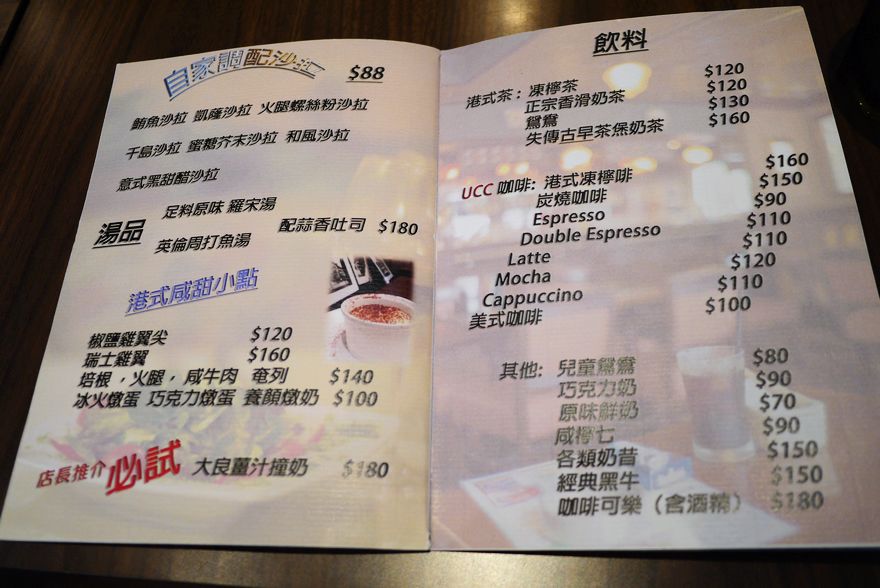 自家調配沙拉 $88
鮪魚沙拉 凱薩沙拉 火腿螺絲粉沙拉
千島沙拉 蜜糖芥末沙拉 和風沙拉
意式黑甜醋沙拉
湯品
足料原味 羅宋湯
英倫周打魚湯
配蒜香吐司 $180
港式咸甜小點
椒鹽雞翼尖 $120
瑞士雞翼 $160
培根,火腿,咸牛肉 奄列 $140
冰火燉蛋 巧克力燉蛋 養顏燉奶 $100
店長推介 必試 大良薑汁撞奶 $180
飲料
港式茶: 凍檸茶 $120
正宗香滑奶茶 $120
鴛鴦 $130
失傳古早茶煲奶茶 $160
UCC 咖啡: 港式凍檸啡 $160
炭燒咖啡 $150
Espresso $90
Double Espresso $110
Latte $110
Mocha $120
Cappuccino $110
美式咖啡 $100
其他: 兒童鴛鴦 $80
巧克力奶 $90
原味鮮奶 $70
咸檸七 $90
各類奶昔 $150
經典黑牛 $150
咖啡可樂(含酒精) $180